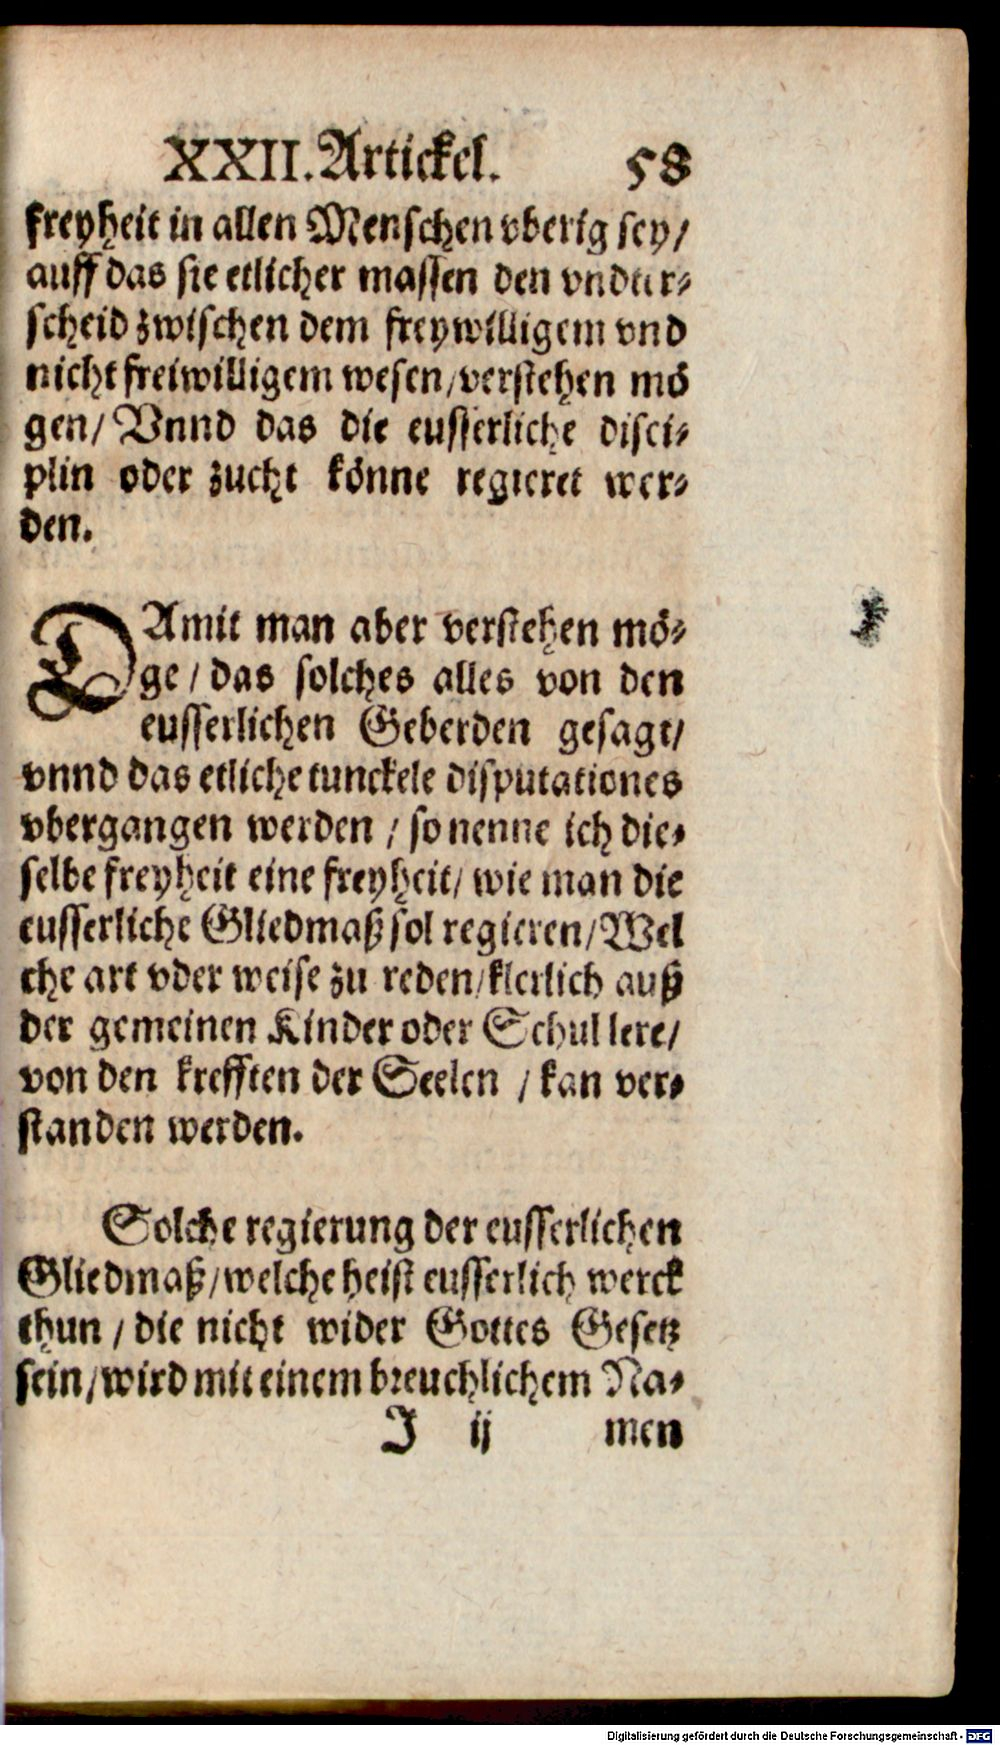 XXII. Artickel. 58
freyheit in allen Menschen vberig sey/
auff das sie etlicher massen den vndter⸗
scheid zwischen dem freywilligem vnd
nicht freiwilligem wesen/verstehen mö
gen/ Vnnd das die eusserliche disci⸗
plin oder zucht könne regieret wer⸗
den.
DAmit man aber verstehen mö⸗
ge/ das solches alles von den
eusserlichen Geberden gesagt/
vnnd das etliche tunckele disputationes
vbergangen werden / so nenne ich die⸗
selbe freyheit eine freyheit/ wie man die
eusserliche Gliedmaß sol regieren/Wel
che art vder weise zu reden/klerlich auß
der gemeinen Kinder oder Schul lere/
von den krefften der Seelen / kan ver⸗
standen werden.
Solche regierung der eusserlichen
Gliedmaß/welche heist eusserlich werck
thun / die nicht wider Gottes Gesetz
sein/wird mit einem breuchlichem Na⸗
J ij men
Digitalisierung gefördert durch die Deutsche Forschungsgemeinschaft - DFG